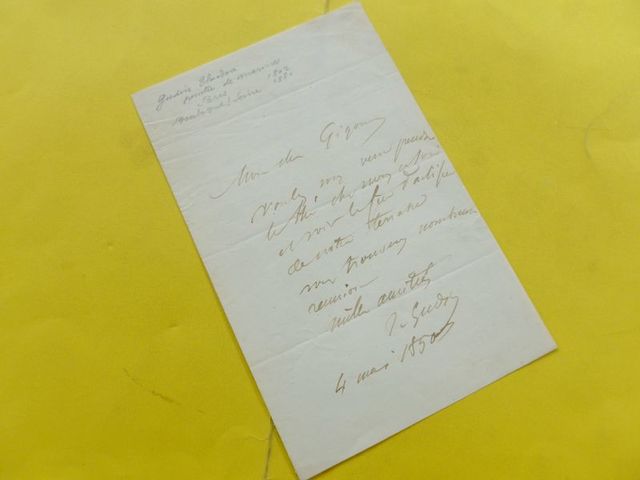 Gudin Théodore
peintre de marines
Paris 1802
Boulogne s/ Seine 1880
Mon cher Gigoux
Voulez vous venir prendre
le thé chez moi ce soir
et voir le feu d'artifice
de notre terrasse
vous trouverez nombreuse
réunion
mille amitiés
T. Gudin
4 mai 1850